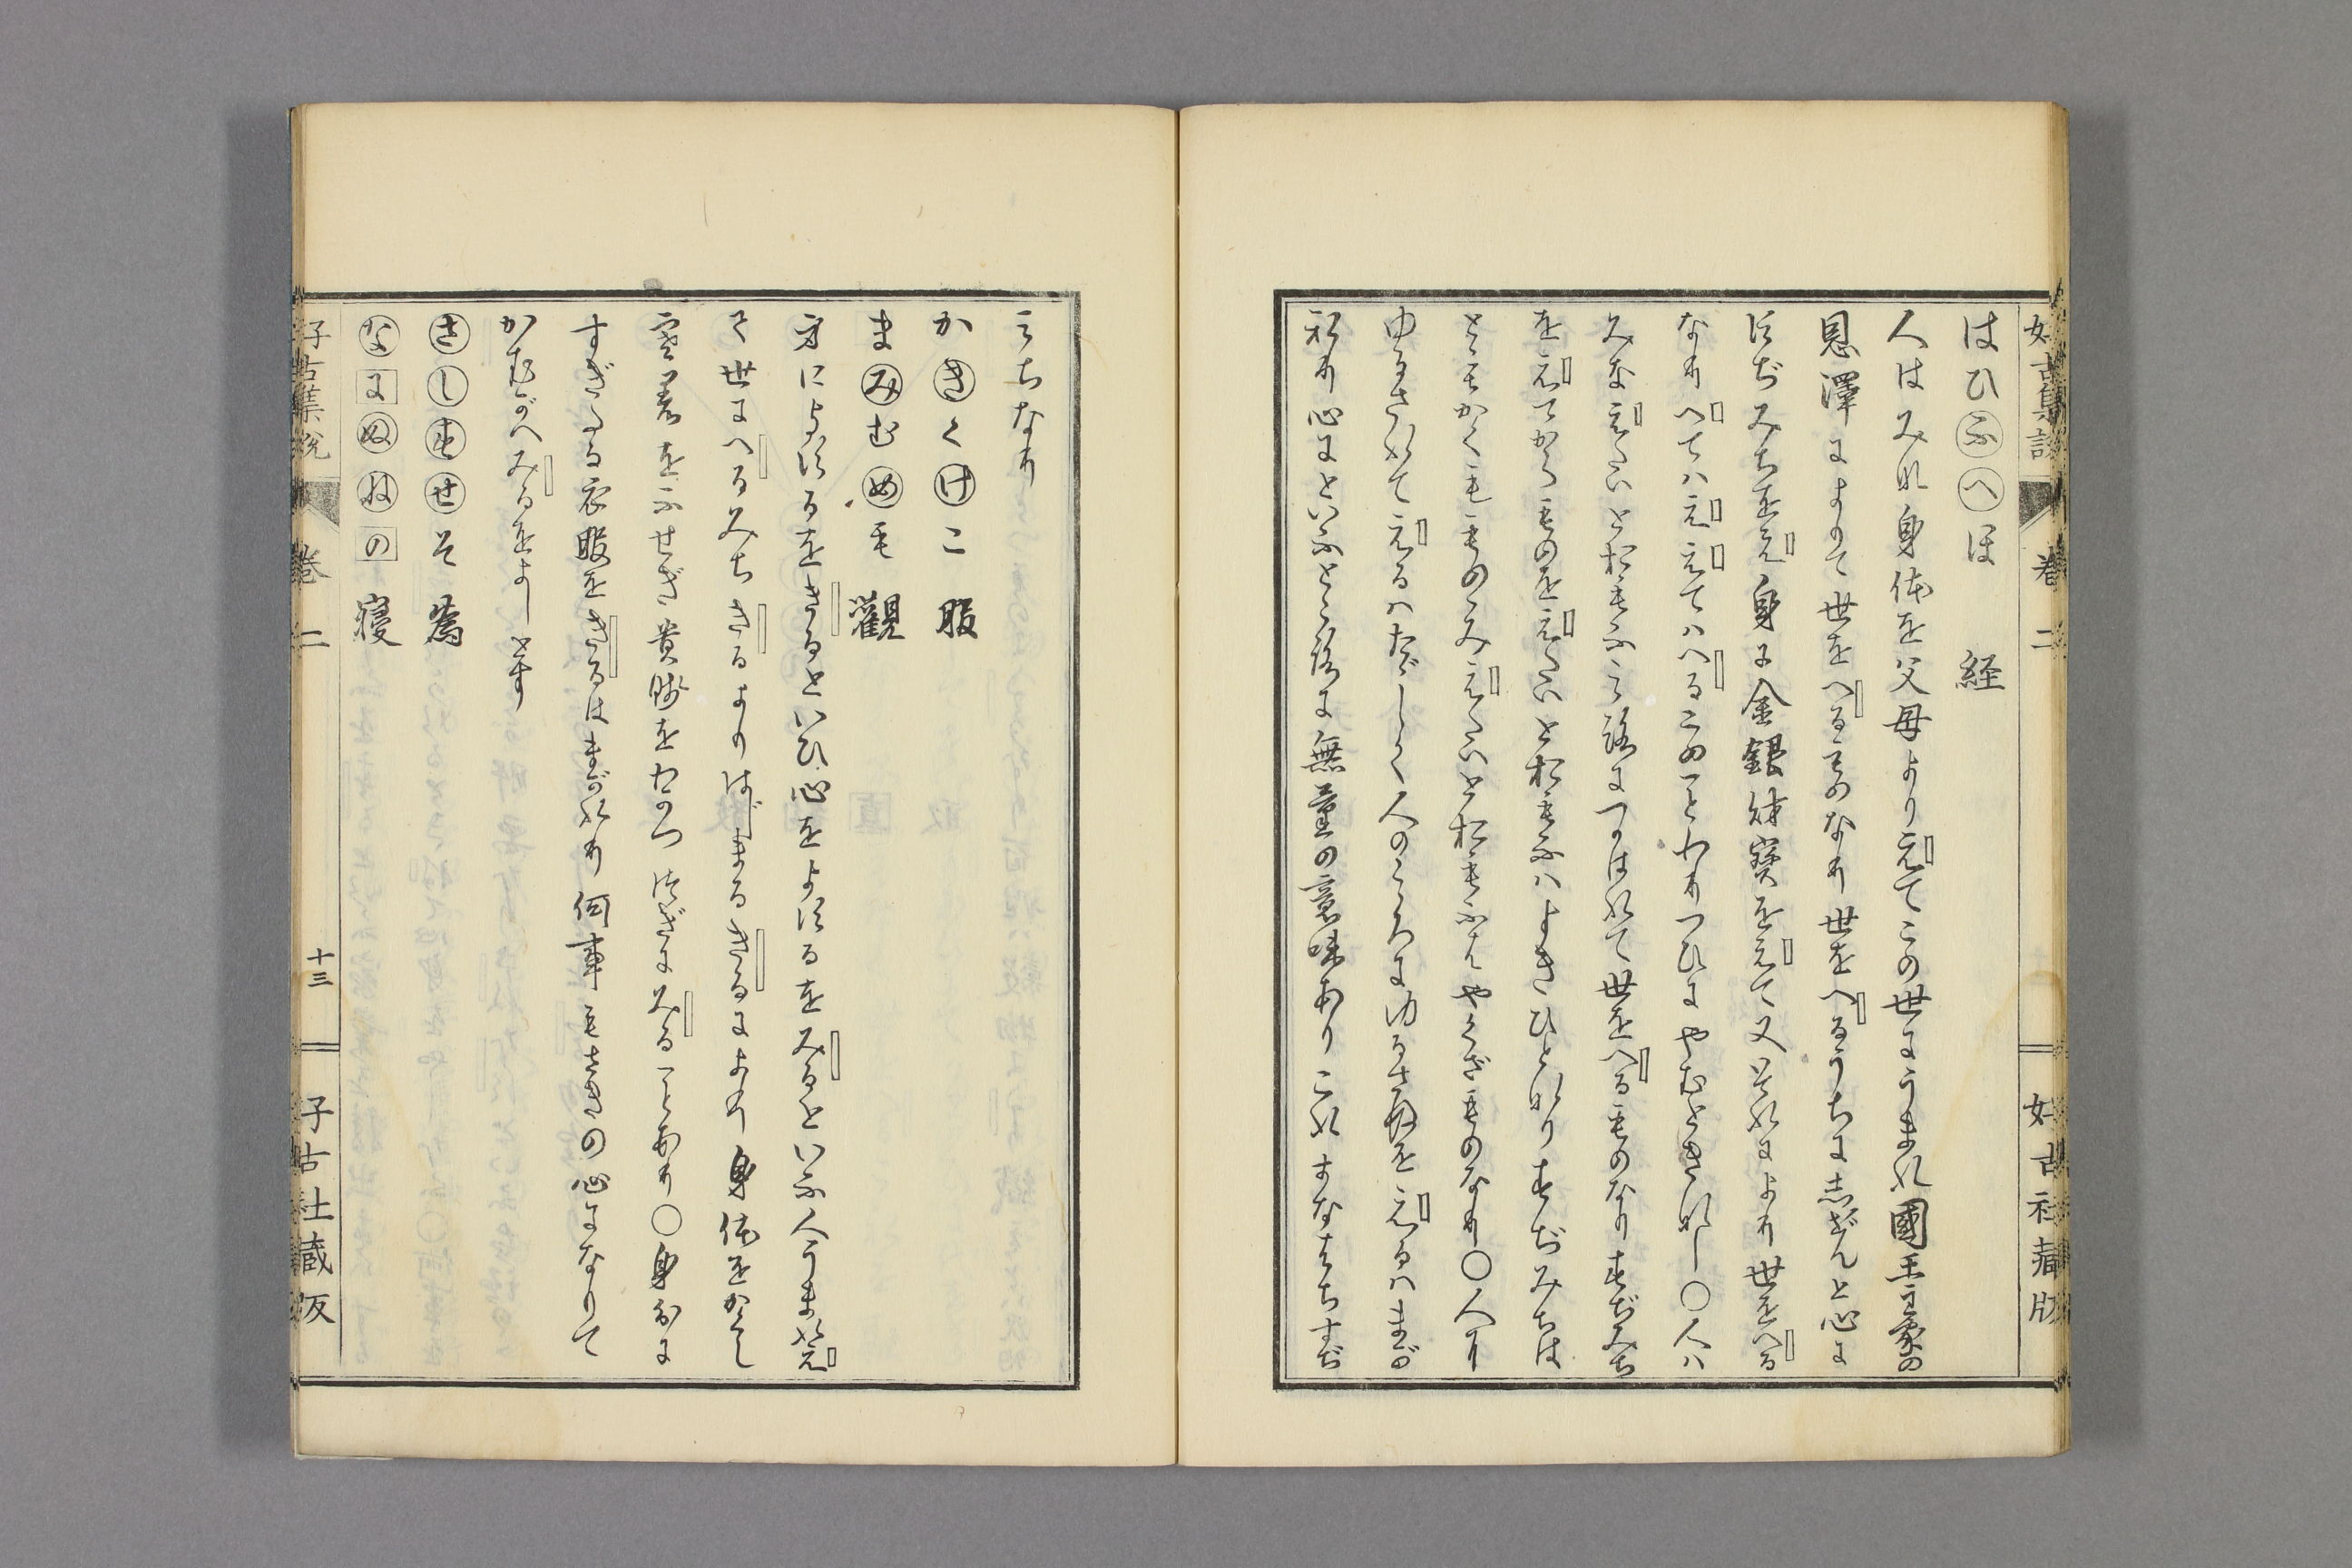 好古集説 巻二 好古社蔵版
はひふへほ 経
人はみな身体を父母より えてこの世にうまれ國王主家の
恩澤によりて世をへるものなり世をへるうちに志ざんと心に
身に金銀財寳をえて又それにより世をへる
なり へてハえ えてハへるこのことわりつひにやむときなし○人ハ
みな えたいとおもふ つかはれて世をへるものなりすぢみち
を えてからものを えたいとおもふハよきひとなりすぢみちは
ともかくもものみ えたいとおもふハ ものなり○人より
ゆるされて えるハたゞしく人のこゝろに ゆるさぬを えるハまが
れり心にといふところに無量の意味ありこれすなはちすぢ
みちなり
かきくけこ 服
まみむめも 觀
身によするをきるといひ心をよするをみるといふ人うまれえ
て世にへるみちきるよりはじまるきるによりて身体をかくし
寒暑をふせぎ貴賤をわかつ つぎにみることあり○身分に
すぎたる衣服をきるはまがれり何事もさきの心になりて
かむがへみるをよしとす
さしすせそ 為
なにぬねの 寝
好古集説 巻二 十三 好古社蔵版